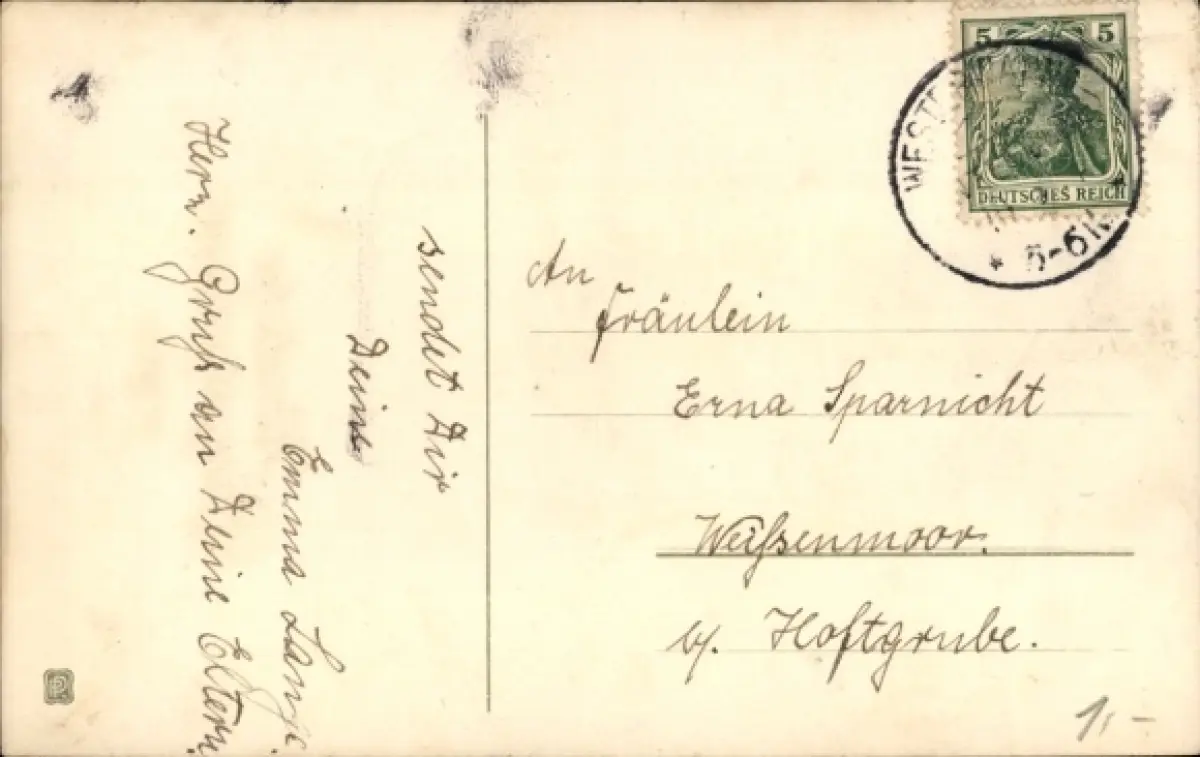 sendet Dir
Deine
Emma Lange
Herzl. Gruß an Deine Eltern
5 5
DEUTSCHES REICH
WEST
* 5-6 N
An
Fräulein
Erna Sparnicht
Weißenmoor.
b/. Hoftgrube.
1,-